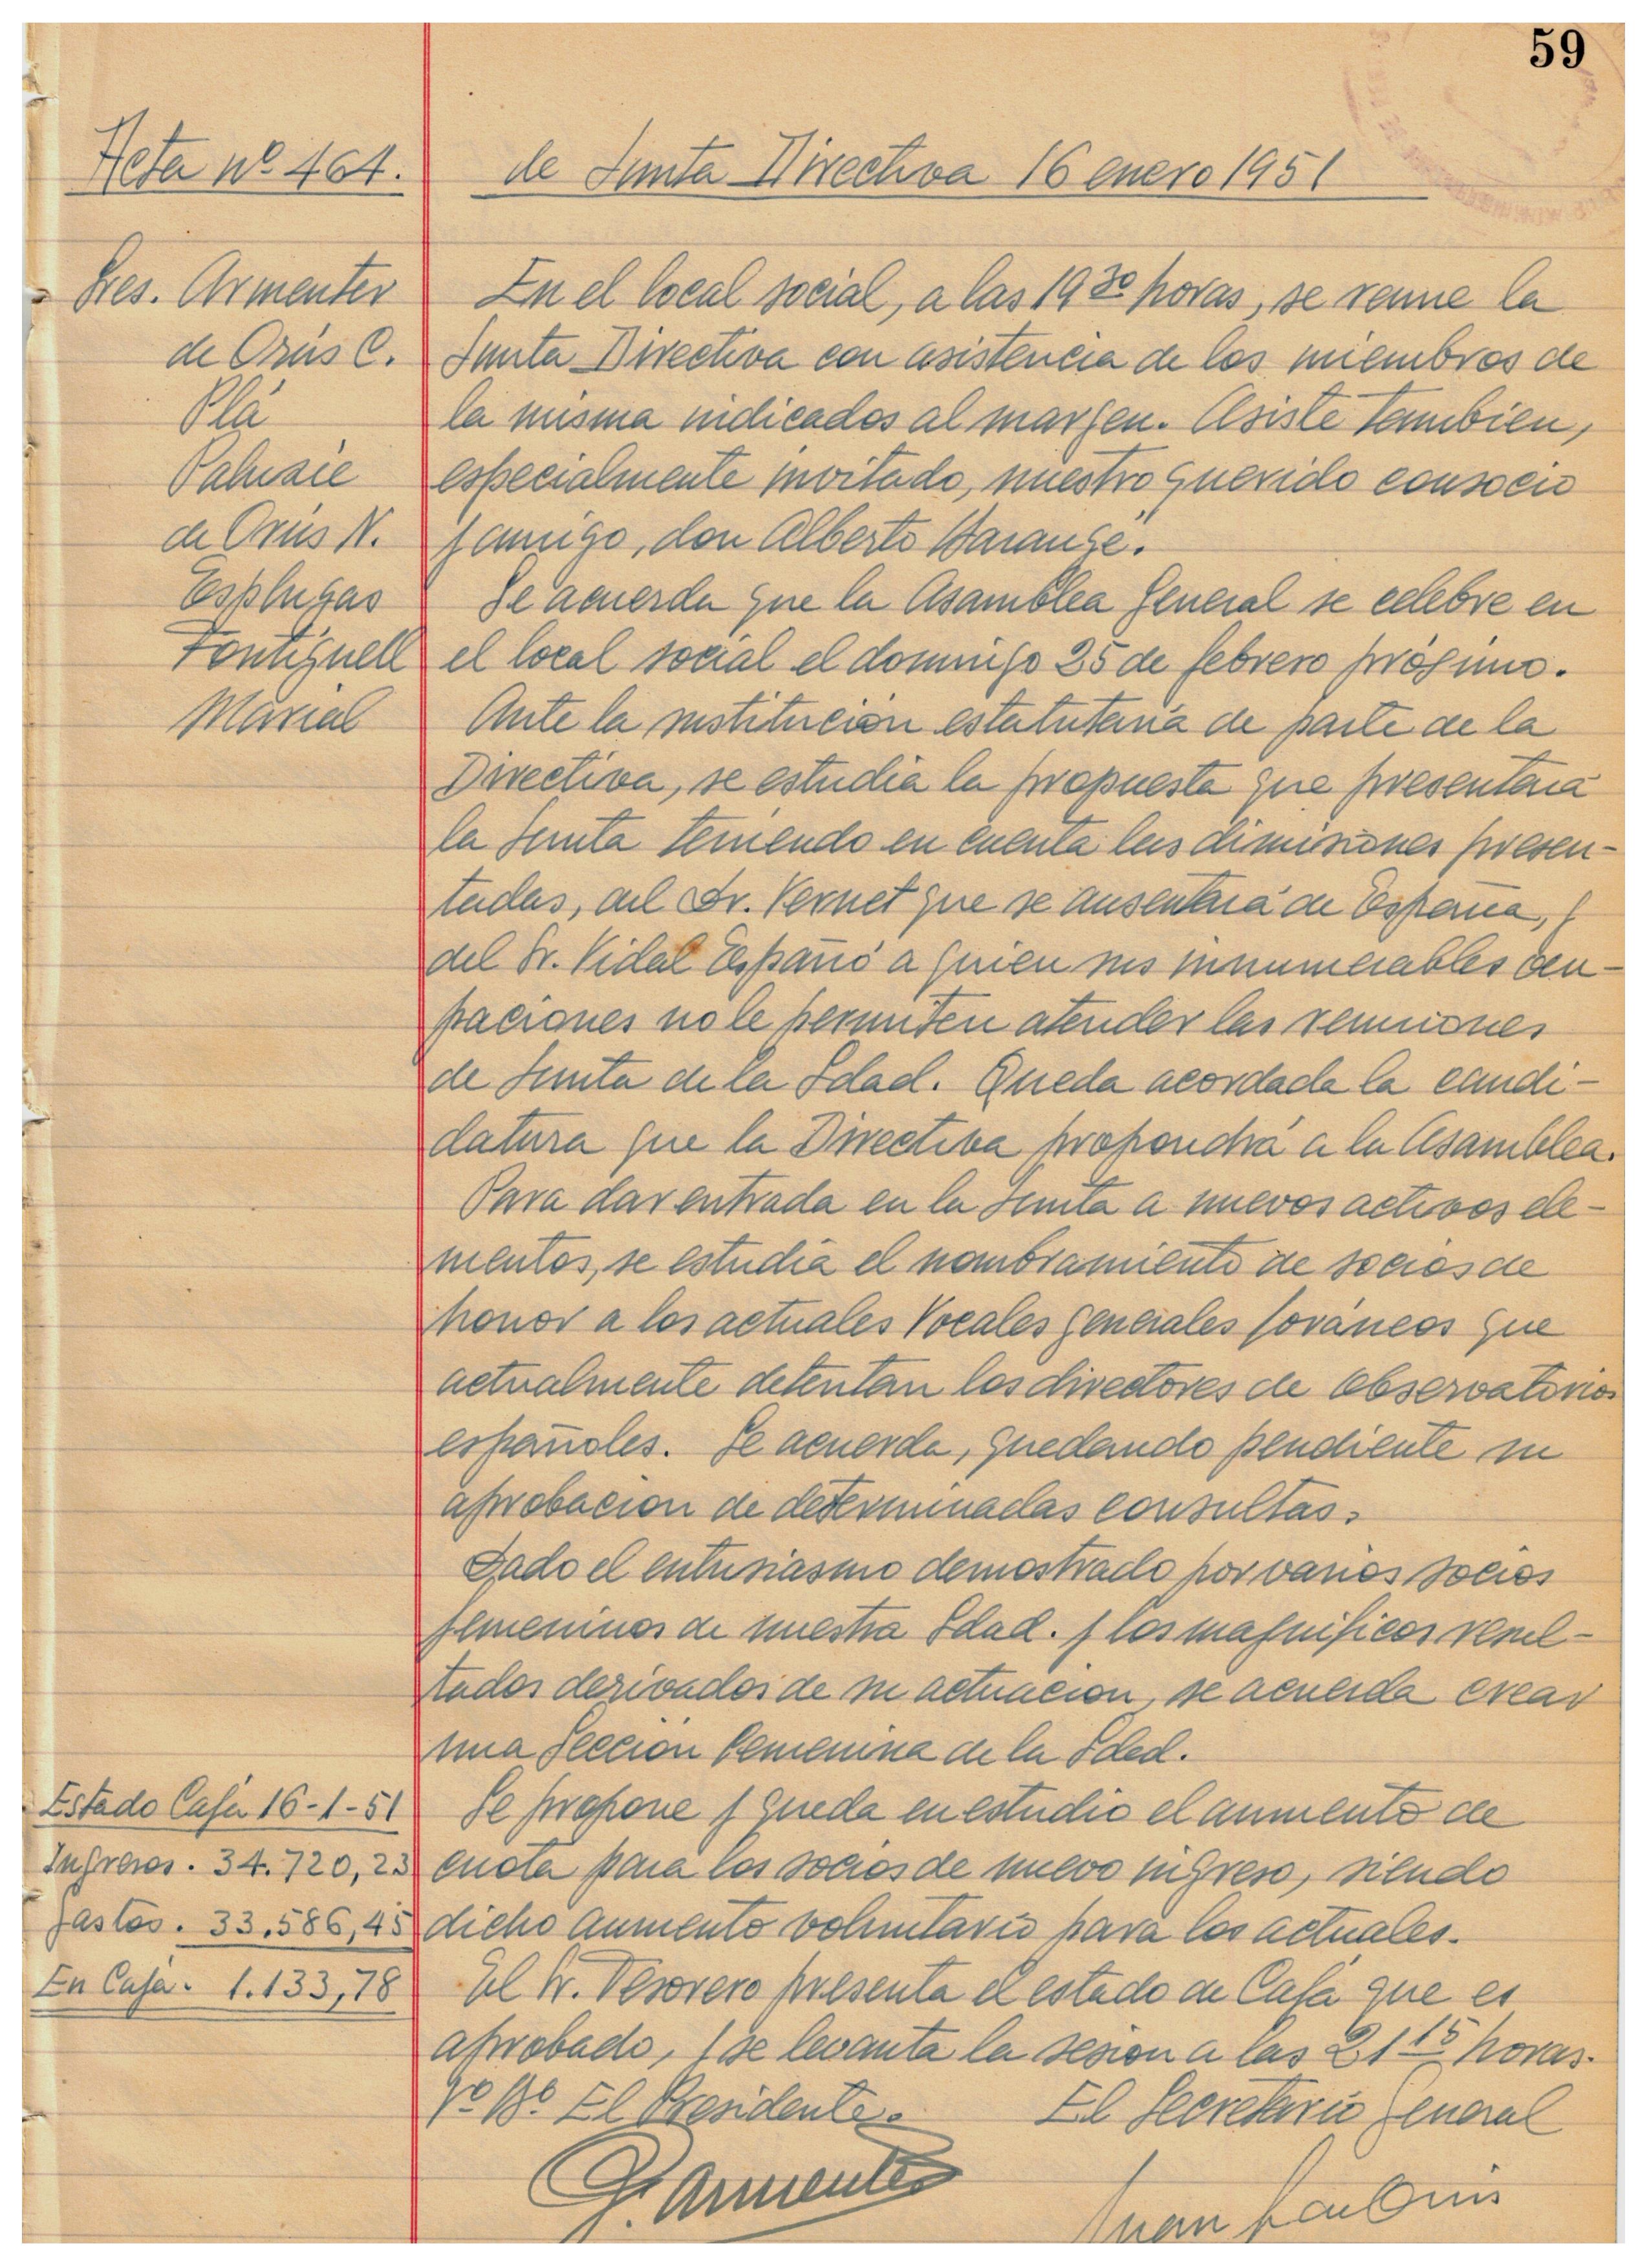 59
Acta nº 464. de Junta Directiva 16 enero 1951
Sres. Armenter
de Orús C.
Plá
Palusie
de Orús N.
Esplugas
Fontiguell
Marcial
En el local social, a las 19 30 horas, se reune la
Junta Directiva con asistencia de los miembros de
la misma indicados al margen. Asiste tambien,
especialmente invitado, nuestro querido consocio
y amigo, don Alberto
Se acuerda que la Asamblea General se celebre en
el local social el domingo 25 de febrero próximo.
Ante la sustitución estatutaria de parte de la
Directiva, se estudia la propuesta que presentará
la Junta teniendo en cuenta las dimisiones presen-
tadas, del Sr. Vernet que se ausentará de España, y
del Sr. Vidal Españó a quien sus innumerables ocu-
paciones no le permiten atender las reuniones
de Junta de la Sdad. Queda acordada la candi-
datura que la Directiva propondrá a la Asamblea.
Para dar entrada en la Junta a nuevos activos ele-
mentos, se estudia el nombramiento de socios de
honor a los actuales Vocales generales foráneos que
actualmente detentan los directores de Observatorios
españoles. Se acuerda, quedando pendiente su
aprobación de determinadas consultas.
Dado el entusiasmo demostrado por varios socios
femeninos de nuestra Sdad. y los magnificos resul-
tados derivados de su actuación, se acuerda crear
una Sección Femenina de la Sdad.
Se propone y queda en estudio el aumento de
cuota para los socios de nuevo ingreso, siendo
dicho aumento voluntario para los actuales.
El Sr. Tesorero presenta el estado de Caja que es
aprobado, y se levanta la sesión a las 21 15 horas.
Estado Caja 16-1-51
Ingresos. 34.720,23
Gastos. 33.586,45
En Caja. 1.133,78
Vº Bº El Presidente. El Secretario General
Armenter
Juan